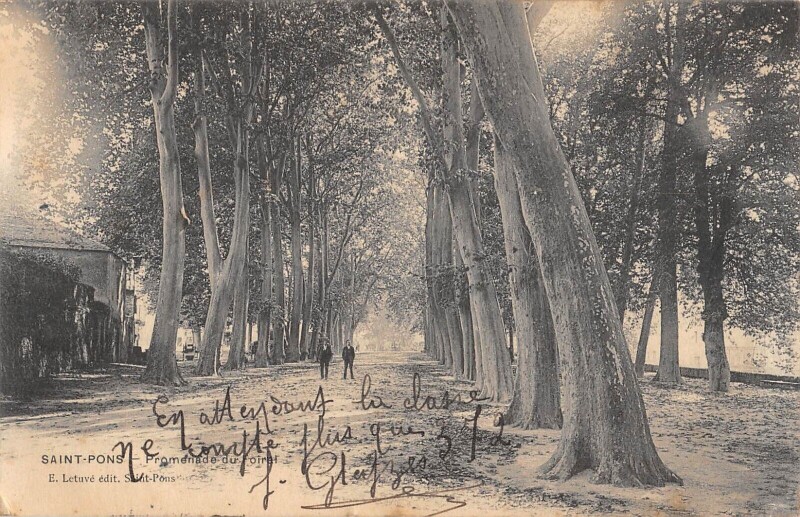 En attendant la classe
ne compte plus que 372
SAINT-PONS Promenade du Foiral
E. Letuvé édit. Saint-Pons
J. Gleyzes